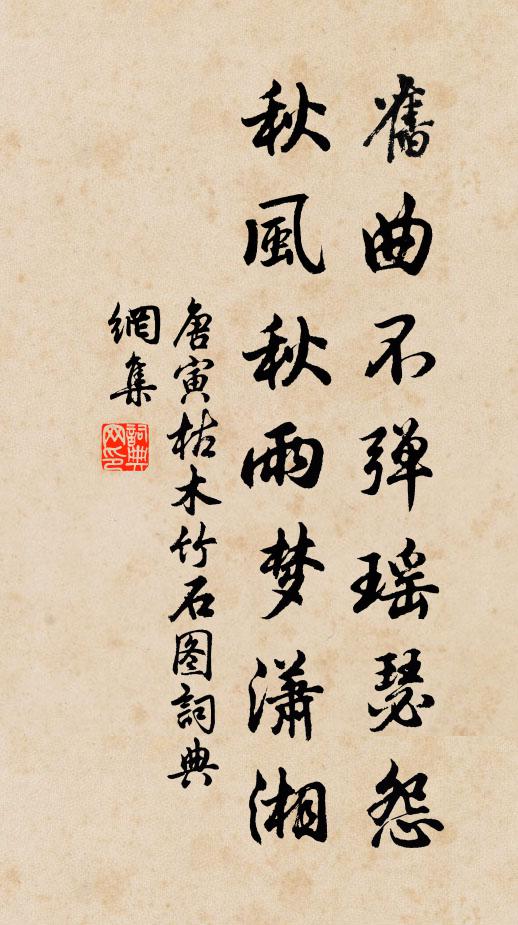 舊曲不弹瑶瑟怨
秋風秋雨梦瀟湘
唐寅枯木竹石图詞典
網集
詞典網印